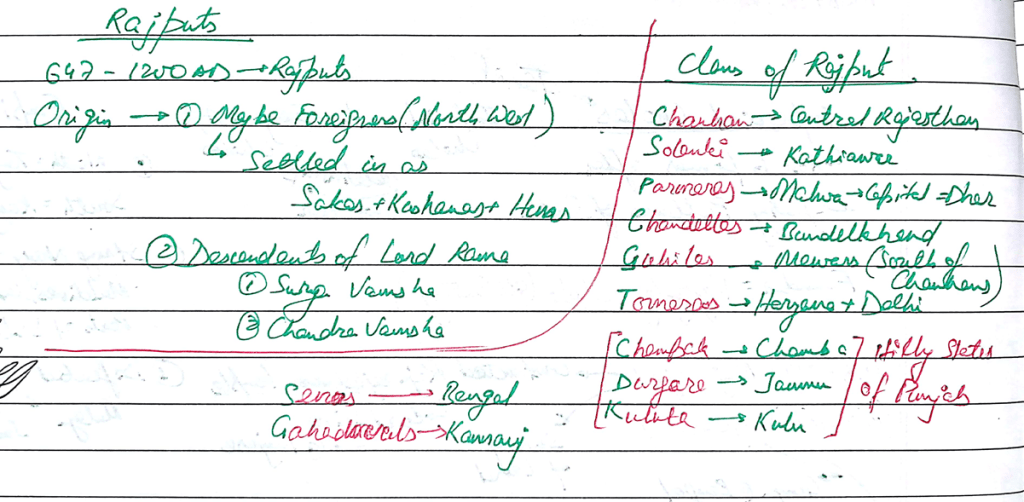 Rajputs
647 - 1200 AD → Rajputs
Origin → ① Maybe Foreigners (North West)
↳ Settled in as
Sakas + Kushanas + Hunas
② Descendents of Lord Rama
① Surya Vamsha
② Chandra Vamsha
Senas → Bengal
Gahadavals → Kannauj
Clans of Rajput
Chauhan → Central Rajasthan
Solanki → Kathiawar
Parmaras → Malwa → Capital = Dhar
Chandellas → Bundelkhand
Guhilas → Mewar (South of Chauhans)
Tomaras → Haryana + Delhi
[Champak → Chamba
Durgare → Jammu
Kuluta → Kulu] Hilly States of Punjab